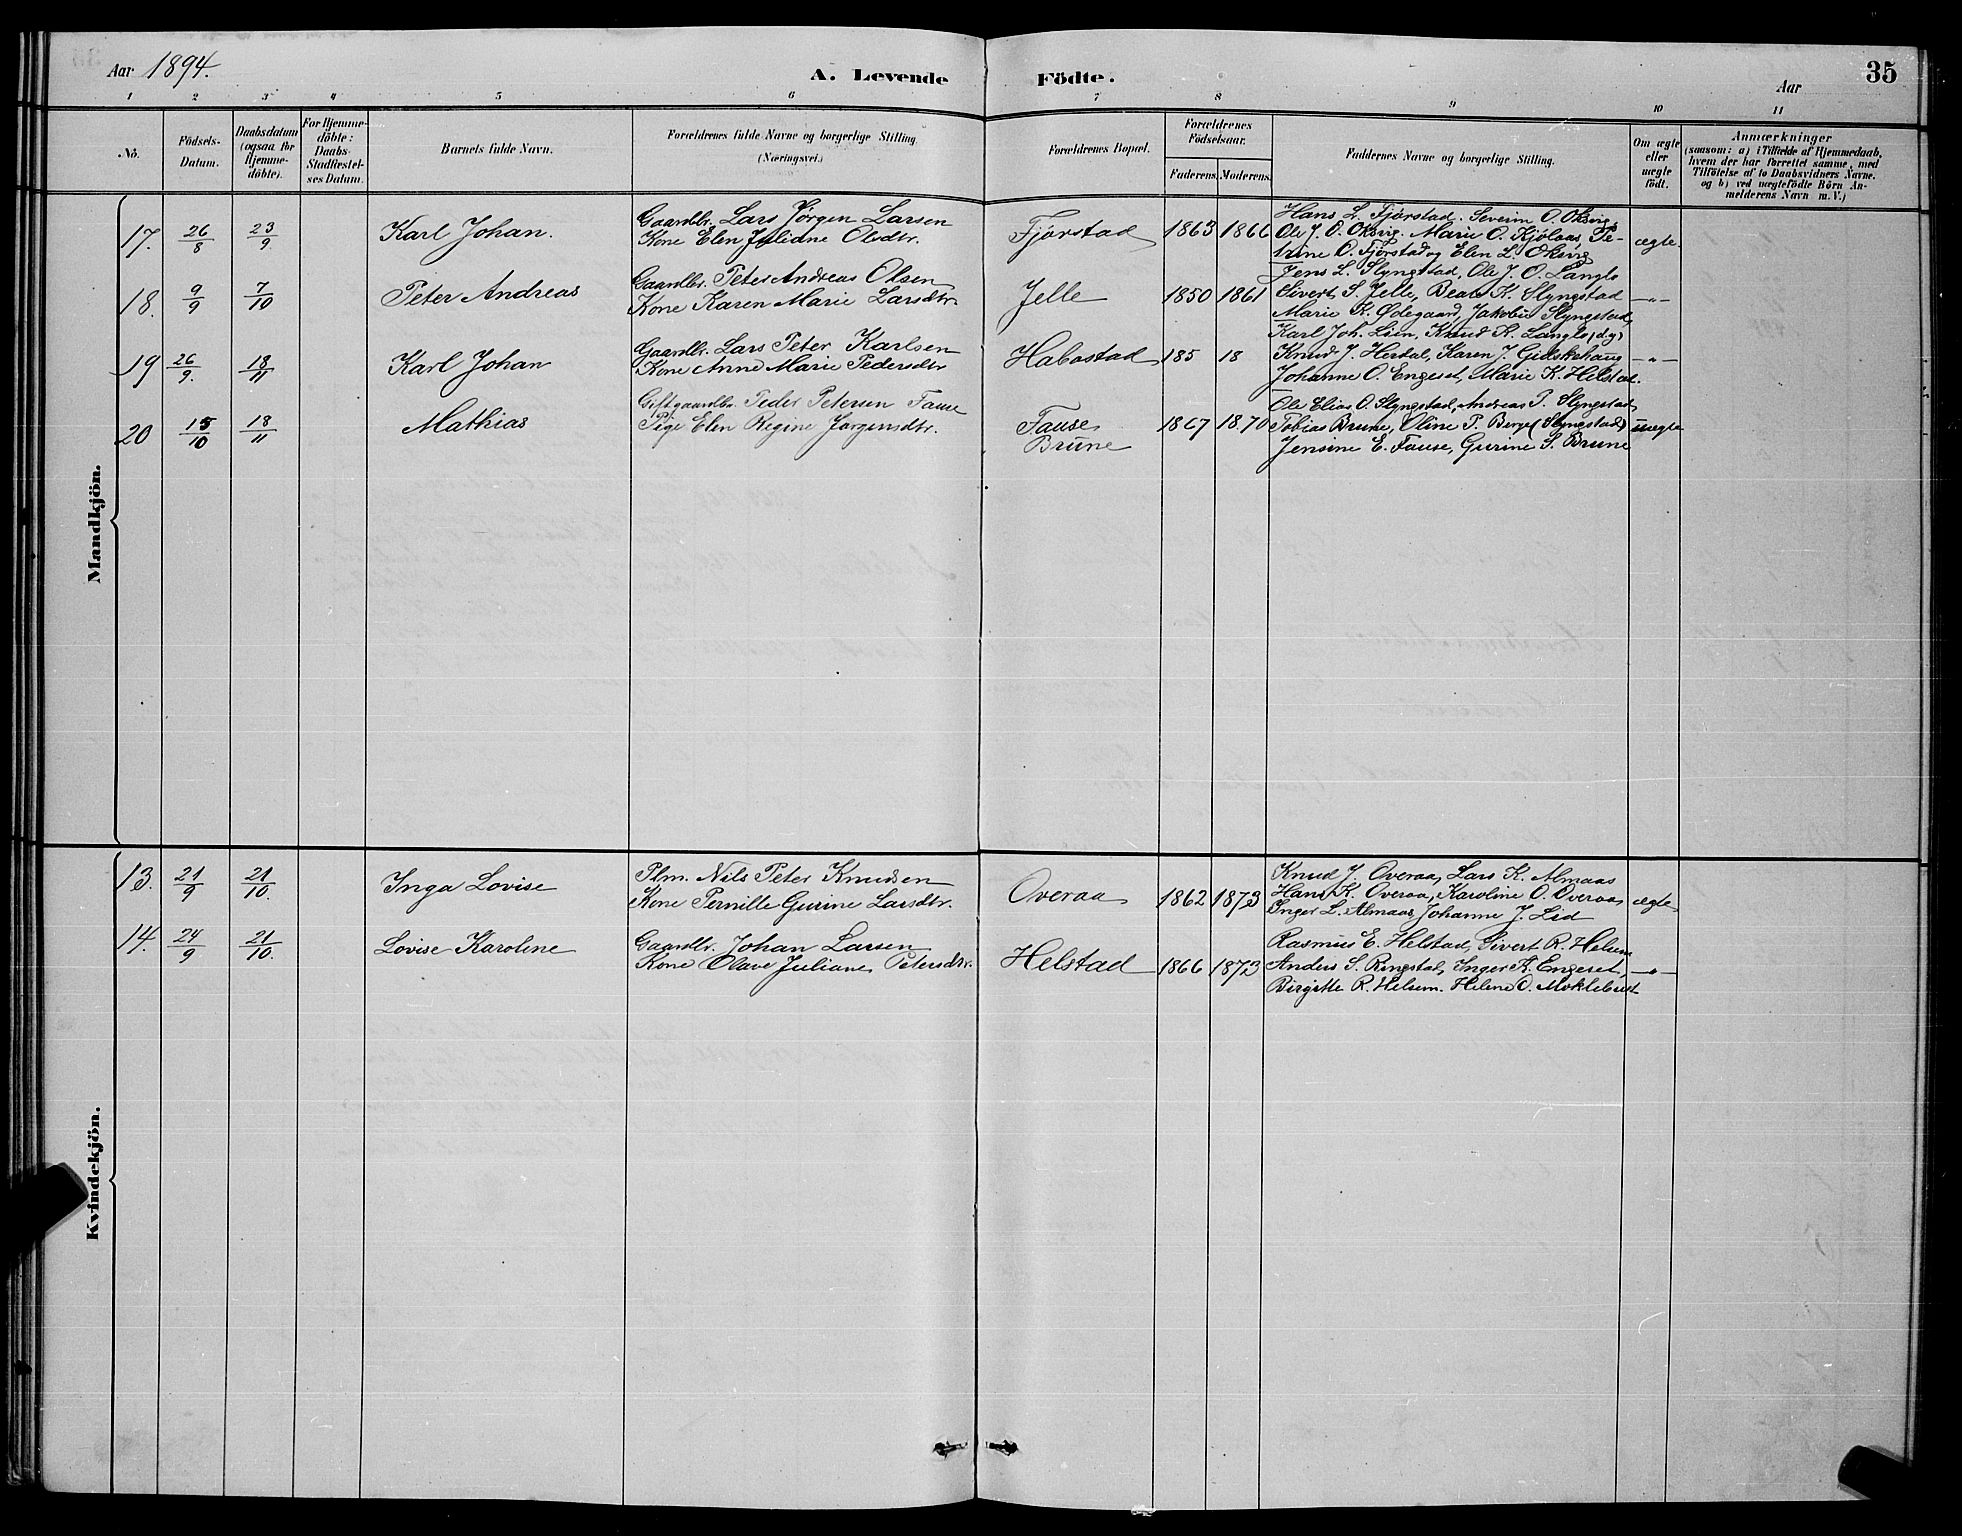 Aar 1894.
A. Levende Födte.
Aar
35
1 2 3 4 5 6 7 8 9 10 11
No.
Födsels-Datum.
Daabsdatum (ogsaa for Hjemme-döbte).
For Hjemme-döbte: Daabs-Stadfæstel-ses Datum.
Barnets fulde Navn.
Forældrenes fulde Navne og borgerlige Stilling. (Næringsvei.)
Forældrenes Bopæl.
Forældrenes Födselsaar.
Faderens. Moderens.
Faddernes Navne og borgerlige Stilling.
Om ægte eller uægte födt.
Anmærkninger
(saasom: a) i Tilfælde af Hjemmedaab,
hvem der har forrettet samme, med
Tilföielse af to Daabsvidners Navne.
og b) ved uægtefödte Börn An-
melderens Navn m. V.)
Mandkjön.
17. 26/8 23/9 Karl Johan.
Gaardbr. Lars Jørgen Larsen
Kone Elen Juliane Olsdtr.
Fjørstad 1863 1866
Hans L. Fjørstad. Severin O. Oksvig,
Ole J. O. Oksvig. Marie O. Kjølaas, Pe-
trine O. Fjørstad og Elen L. Oksvig
ægte.
18. 9/9 7/10 Peter Andreas
Gaardbr. Peter Andreas Olsen
Kone Karen Marie Larsdtr.
Jelle 1850 1861
Jens L. Slyngstad, Ole J. O. Langlo
Sivert S. Jelle, Beate K. Slyngstad
Marie K. Ødegaard, Jakobia Slyngstad,
—"—
19 26/9. 18/11 Karl Johan
Gaardbr. Lars Peter Karlsen
Kone Anne Marie Pedersdtr
Habostad 185 18
Karl Joh. Lien, Knud A. Langlo (dg)
Knud J. Herdal, Karen J. Gidskehaug
Johanne O. Engeset, Marie K. Helstad.
—"—
20 15/10 18/11 Mathias
Gift gaardbr. Peder Petersen Fause
Pige Elen Regine Jørgensdtr.
Fause
Brune
1867 1870
Ole Elias O. Slyngstad, Andreas P. Slyngstad
Tobias Brune, Oline P. Berge (Slyngstad)
Jensine E. Fause, Gurine S. Brune
uægte
Kvindekjön.
13. 21/9 21/10. Inga Lovise
Plm. Nils Peter Knudsen
Kone Pernille Gurine Larsdtr.
Overaa 1862 1873
Knud J. Overaa, Lars K. Almaas
Hans K. Overaa, Karoline O. Overaa
Inger L. Almaas Johanne J. Lid
ægte
14. 24/9 21/10. Lovise Karoline
Gaardbr. Johan Larsen
Kone Olave Juliane Petersdtr.
Helstad 1866 1873
Rasmus E. Helstad, Sivert R. Helsem
Anders S. Ringstad, Inger K. Engeset,
Birgitte R. Helsem. Helene O. Moklebust
—"—